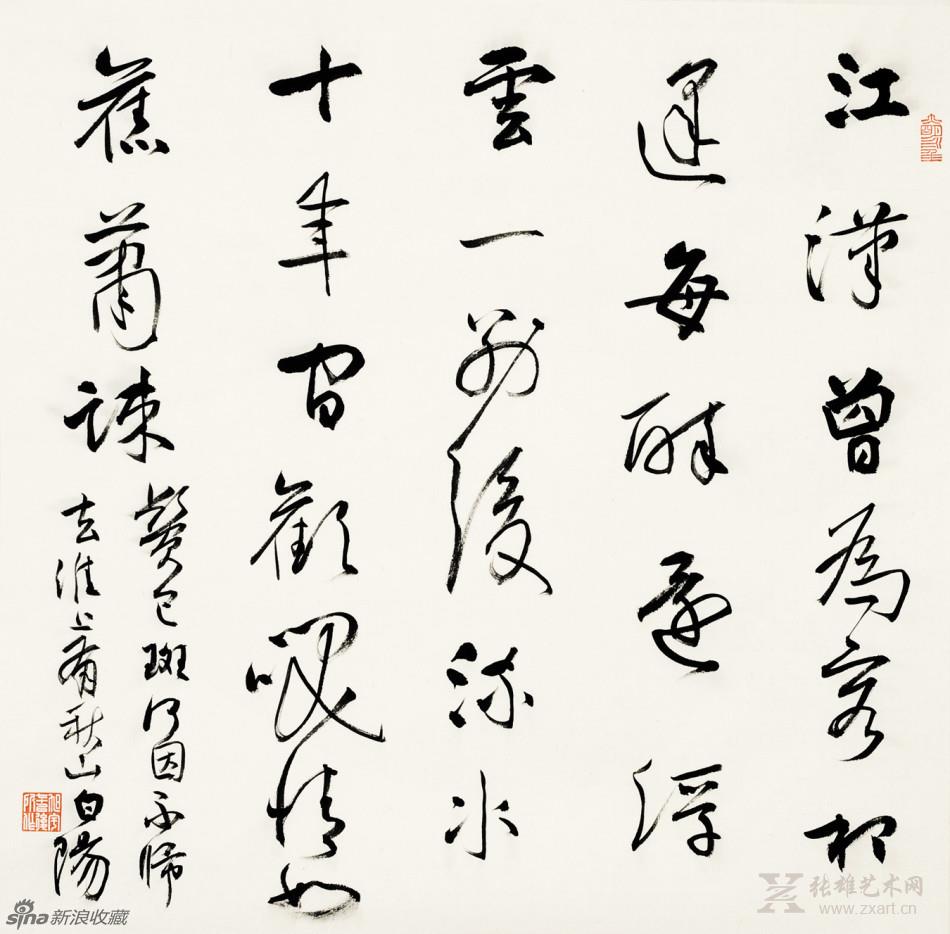 江漢曾為客相
逢每醉還浮
雲一別後流水
十年間歡笑情如
舊蕭疎
鬢已斑何因不歸
去淮上有秋山白陽
sina新浪收藏
张雄艺术网
www.zxart.cn